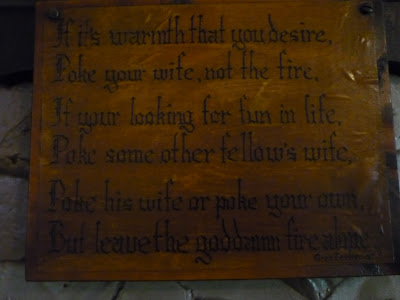 If it's warmth that you desire,
Poke your wife, not the fire.
If your looking for fun in life,
Poke some other fellow's wife,
Poke his wife or poke your own,
But leave the goddamn fire alone